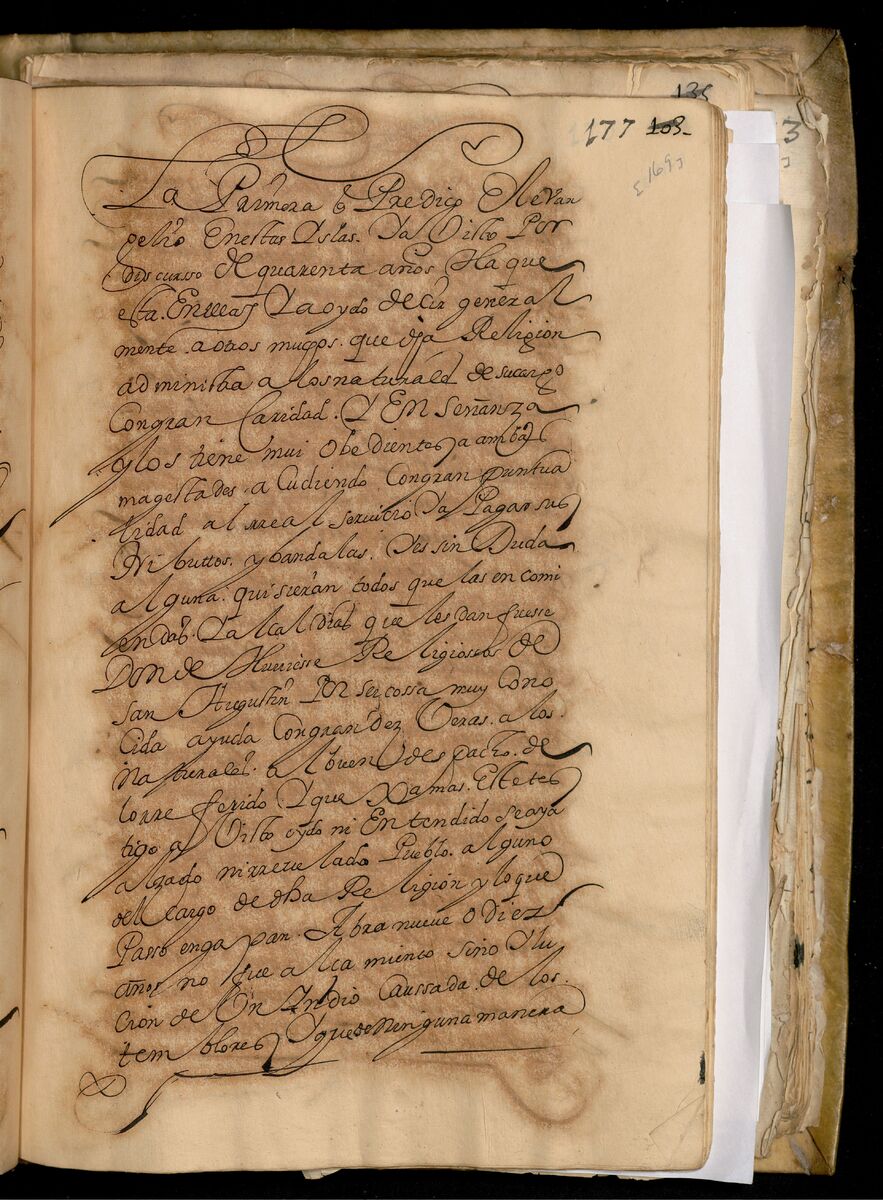 135
177 103
3
169
La Primera q Predico El evan
gelio En estas Yslas. Ya Visto Por
discurso de quarenta años Ha que
esta. En ellas Y a oydo decir general
mente. a otros muchos. que dha Religion
administra a los naturales de su cargo
Con gran Caridad. Y Enseñanza
y los tiene mui obedientes a ambas
magestades. a Cudiendo Con gran puntua
lidad al rreal servicio Y a Pagar sus
tributtos. y bandalas. Y es sin Duda
alguna. quisieran todos que las encomi
endas. Y alcaldias que les dan fuesse
Donde Huviesse Religiossos de
San Augustin Por ser cossa muy cono
cida ayuda Con gran dez Veras. a los.
Naturales. al buen despacho. de
lo rreferido Y que Xamas. Este tes
tigo a Visto oydo ni Entendido se aya
alzado ni rrevelado Pueblo. alguno
del cargo de dha Religion y lo que
Passo en gapan. Abra nueve o diez
años no fue alcamiento sino Ylu
cion de Un Indio Caussada. de los.
temblores Y que de ninguna manera